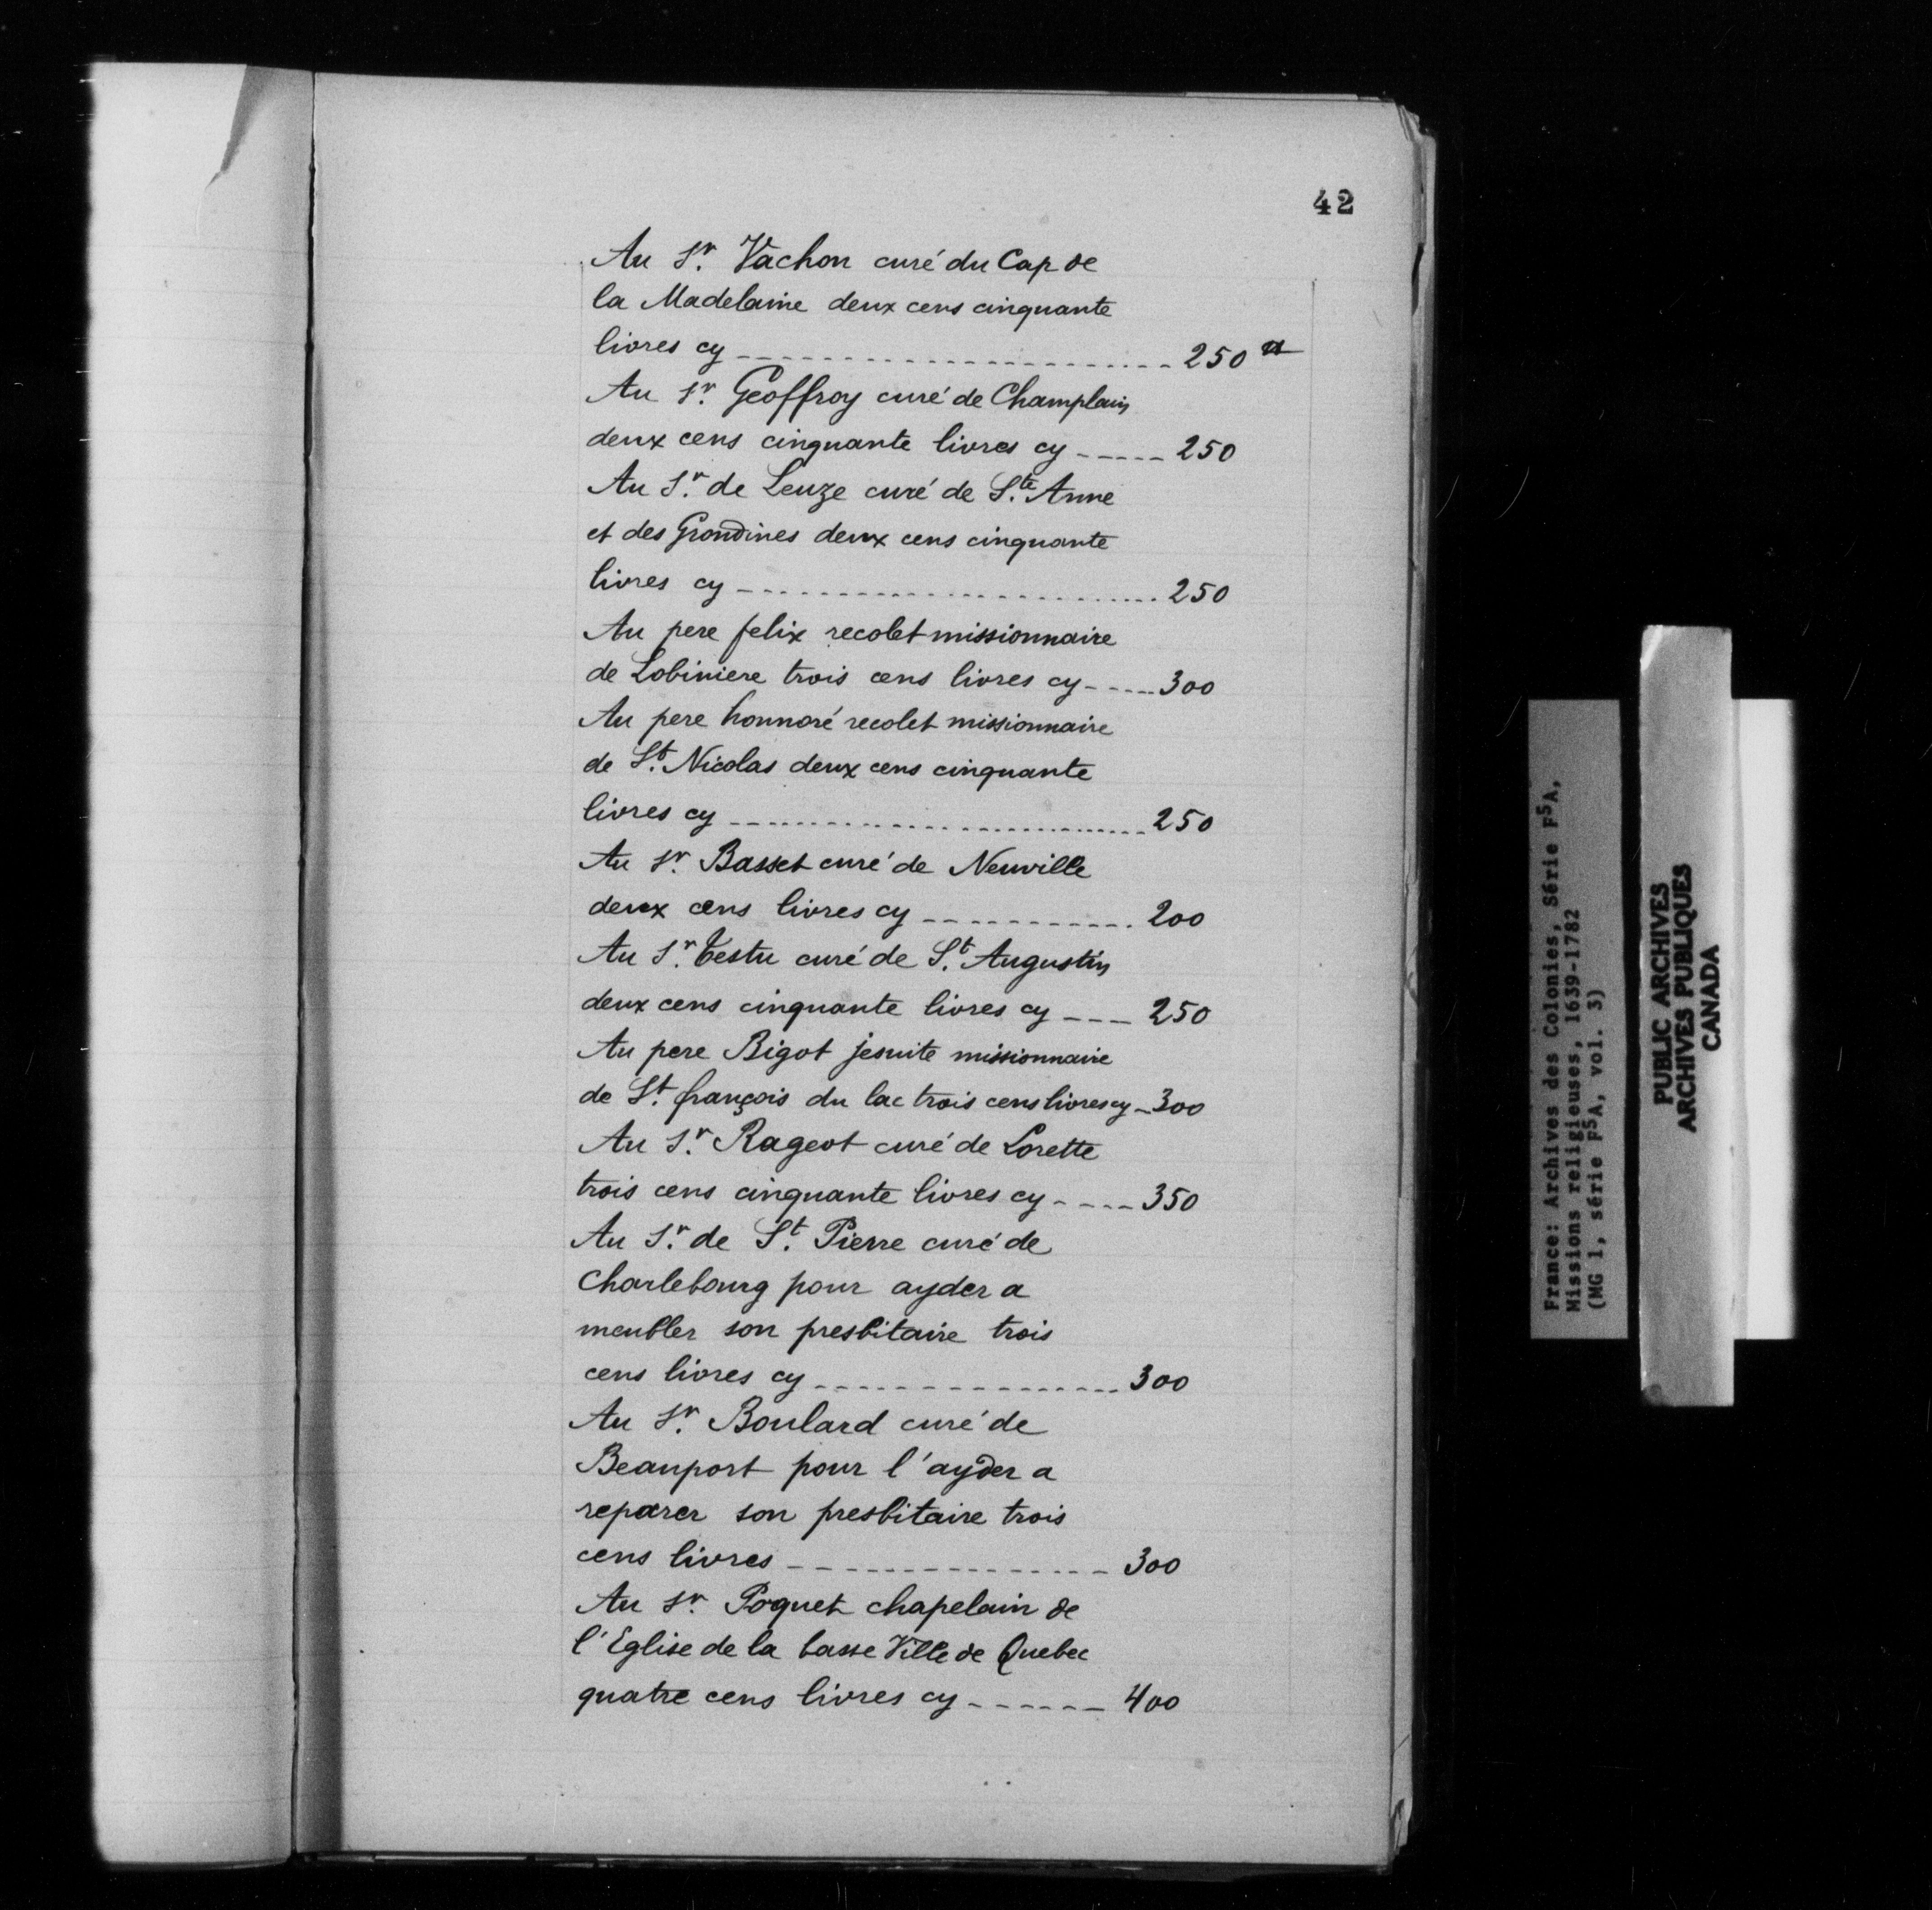 42
Au Sr. Vachon curé du Cap de
la Madelaine deux cens cinquante
livres cy ---------- 250 ₶
Au Sr. Geoffroy curé de Champlain
deux cens cinquante livres cy ----- 250
Au Sr. de Leuze curé de Ste. Anne
et des Grondines deux cens cinquante
livres cy ---------- 250
Au pere felix recolet missionnaire
de Lobiniere trois cens livres cy ----- 300
Au pere honnoré recolet missionnaire
de St. Nicolas deux cens cinquante
livres cy ---------- 250
Au Sr. Basset curé de Neuville
deux cens livres cy ---------- 200
Au Sr. Testu curé de St. Augustin
deux cens cinquante livres cy --- 250
Au pere Bigot jesuite missionnaire
de St. françois du lac trois cens livres cy - 300
Au Sr. Rageot curé de Lorette
trois cens cinquante livres cy ---- 350
Au Sr. de St. Pierre curé de
Charlebourg pour ayder a
meubler son presbitaire trois
cens livres cy ---------- 300
Au Sr. Boulard curé de
Beauport pour l'ayder a
reparer son presbitaire trois
cens livres ---------- 300
Au Sr. Poquet chapelain de
l'Eglise de la basse Ville de Quebec
quatre cens livres cy ------ 400
France: Archives des Colonies, Série F5A,
Missions religieuses, 1639-1782
(MG 1, série F5A, vol. 3)
PUBLIC ARCHIVES
ARCHIVES PUBLIQUES
CANADA